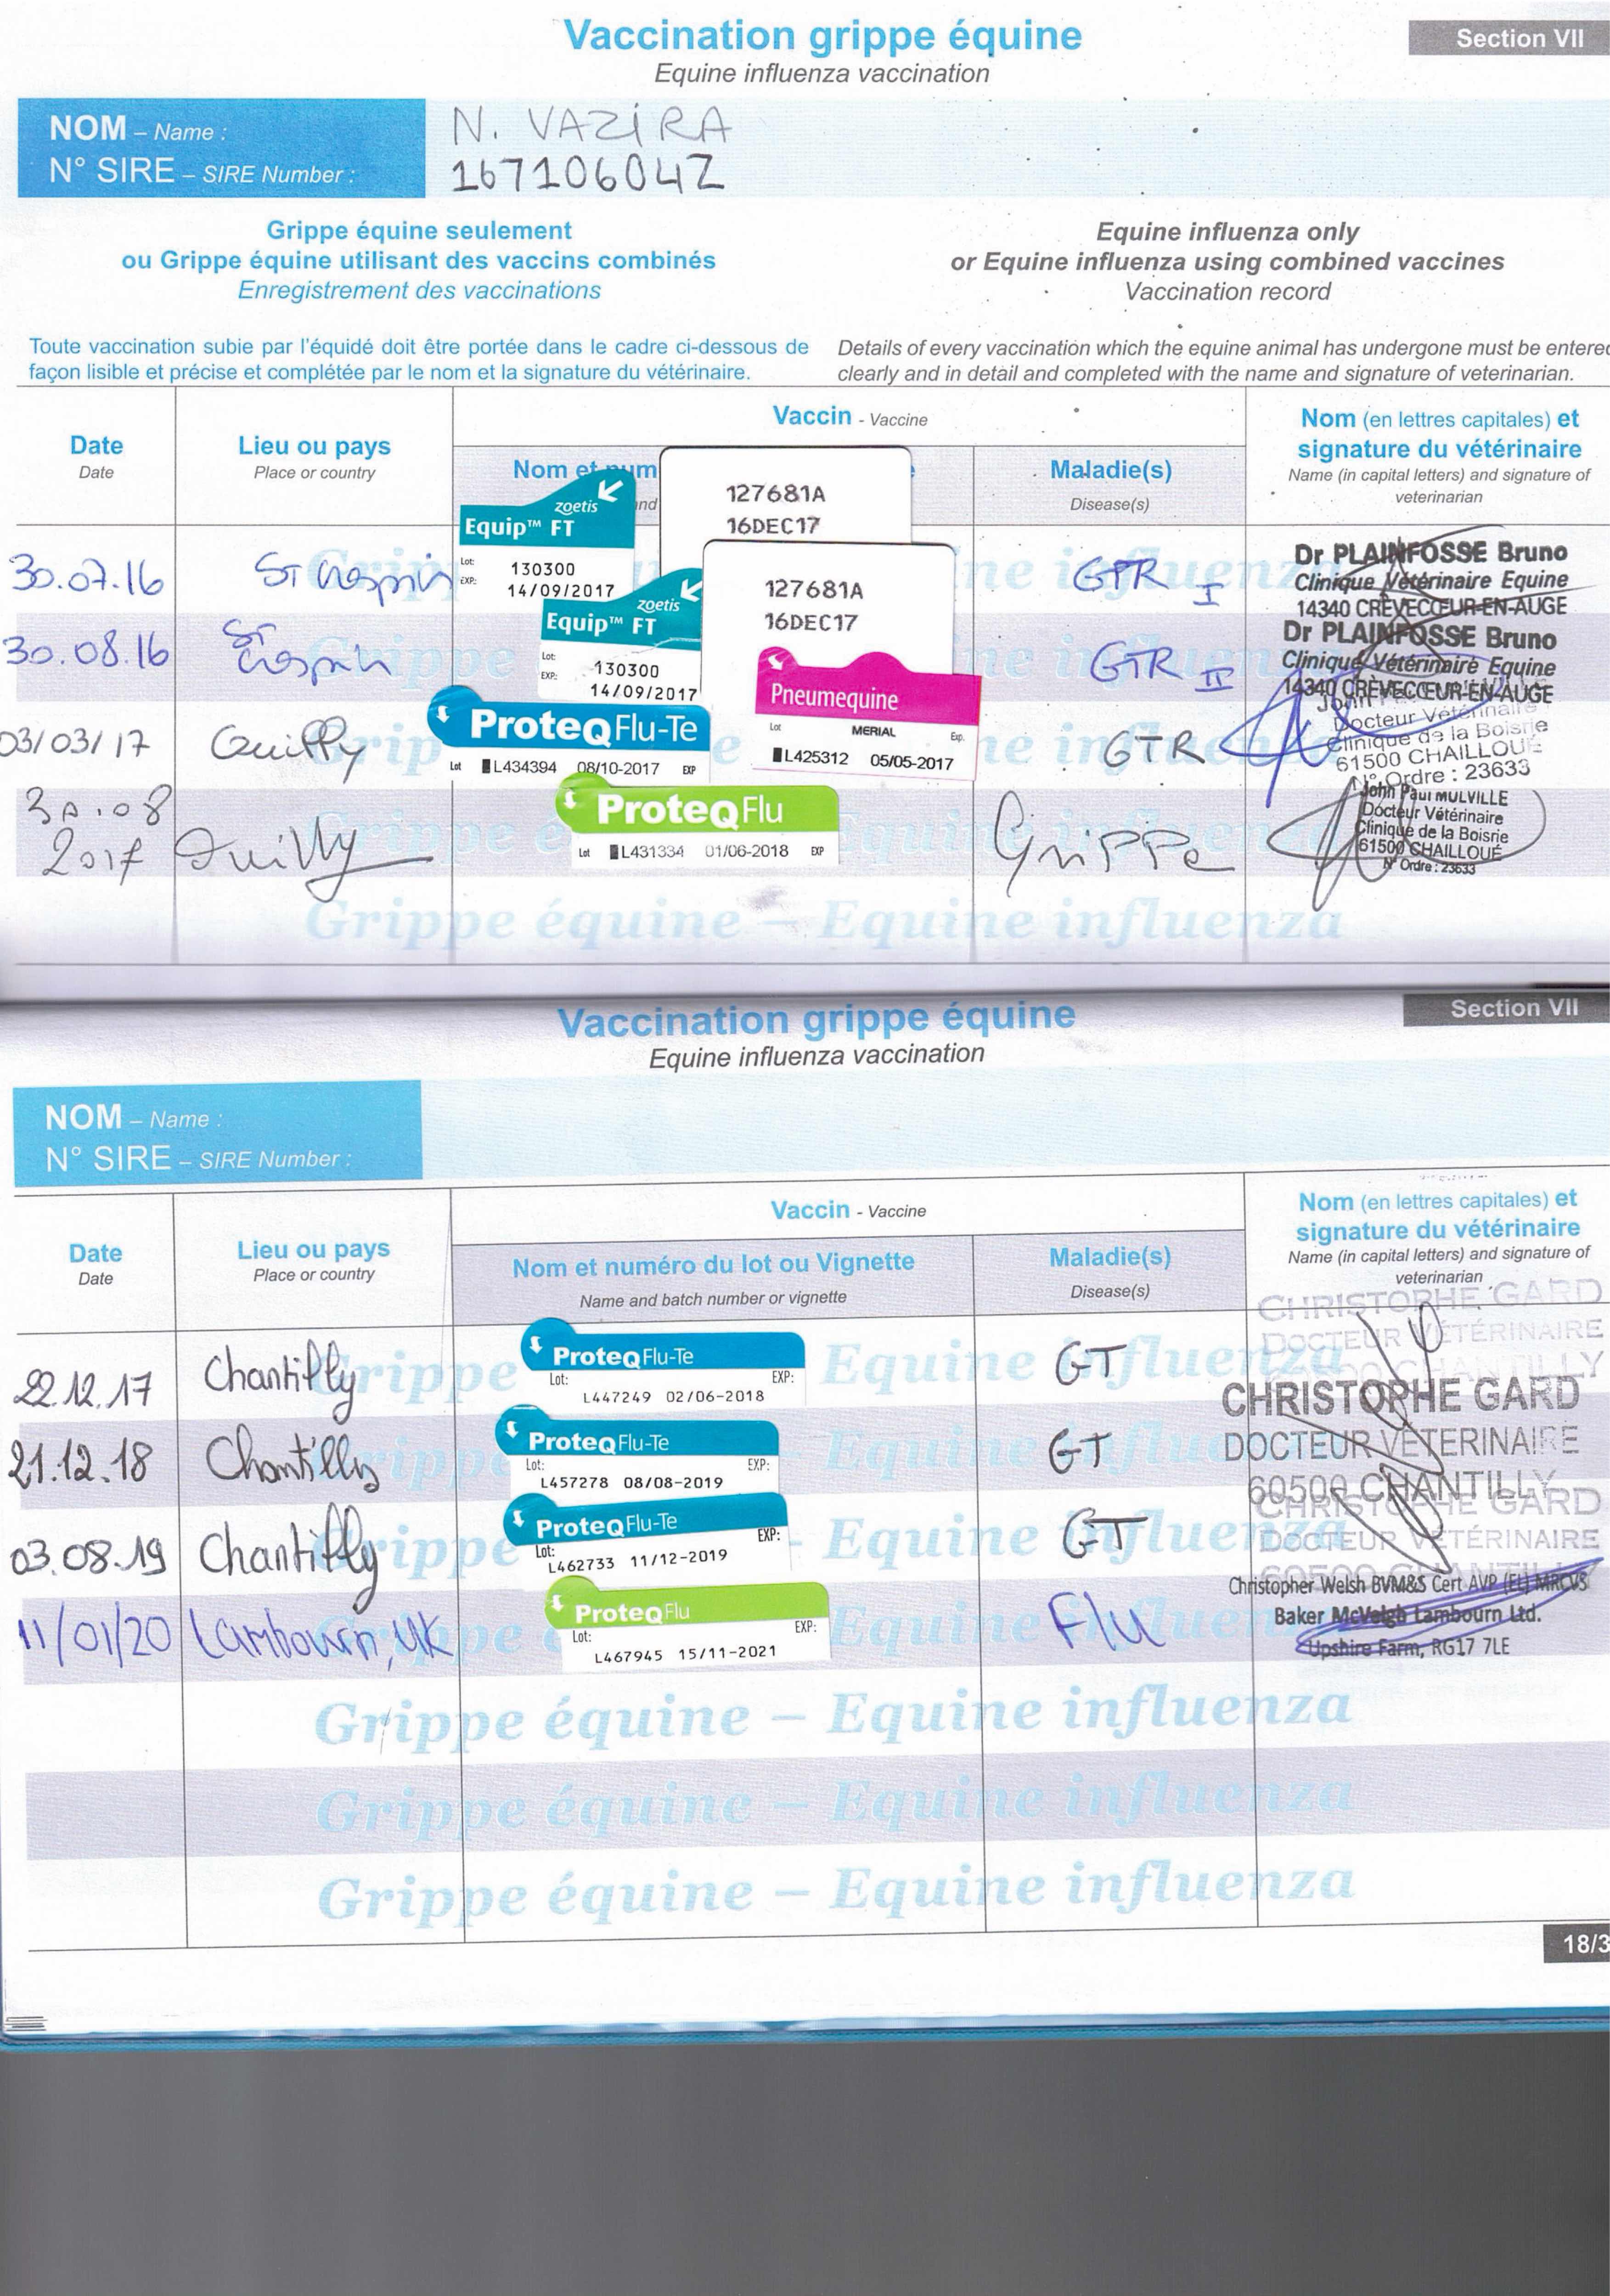 Vaccination grippe équine
Section VII
Equine influenza vaccination
NOM – Name :
N. VAZIRA
N° SIRE – SIRE Number :
16710604Z
Grippe équine seulement
ou Grippe équine utilisant des vaccins combinés
Enregistrement des vaccinations
Equine influenza only
or Equine influenza using combined vaccines
Vaccination record
Toute vaccination subie par l'équidé doit être portée dans le cadre ci-dessous de
façon lisible et précise et complétée par le nom et la signature du vétérinaire.
Details of every vaccination which the equine animal has undergone must be entered
clearly and in detail and completed with the name and signature of veterinarian.
Date
Date
Lieu ou pays
Place or country
Vaccin - Vaccine
Nom et num
Maladie(s)
Disease(s)
Nom (en lettres capitales) et
signature du vétérinaire
Name (in capital letters) and signature of
veterinarian
30.07.16
St Crespin
zoetis
Equip™ FT
Lot: 130300
EXP: 14/09/2017
127681A
16DEC17
GTR I
Dr PLAINFOSSE Bruno
Clinique Vétérinaire Equine
14340 CRÈVECŒUR-EN-AUGE
30.08.16
St
Crespin
zoetis
Equip™ FT
Lot: 130300
EXP: 14/09/2017
127681A
16DEC17
GTR II
Dr PLAINFOSSE Bruno
Clinique Vétérinaire Equine
14340 CRÈVECŒUR-EN-AUGE
03/03/17
Quilly
ProteqFlu-Te
Lot L434394 08/10-2017 EXP
Pneumequine
Lot MERIAL Exp.
L425312 05/05-2017
GTR
Docteur Vétérinaire
Clinique de la Boisrie
61500 CHAILLOUÉ
N° Ordre : 23633
30.08
2017
Quilly
ProteqFlu
Lot L431334 01/06-2018 EXP
Grippe
John Paul MULVILLE
Docteur Vétérinaire
Clinique de la Boisrie
61500 CHAILLOUÉ
N° Ordre : 23633
Grippe équine – Equine influenza
Vaccination grippe équine
Section VII
Equine influenza vaccination
NOM – Name :
N° SIRE – SIRE Number :
Date
Date
Lieu ou pays
Place or country
Vaccin - Vaccine
Nom et numéro du lot ou Vignette
Name and batch number or vignette
Maladie(s)
Disease(s)
Nom (en lettres capitales) et
signature du vétérinaire
Name (in capital letters) and signature of
veterinarian
22.12.17
Chantilly
ProteqFlu-Te
Lot: EXP:
L447249 02/06-2018
GT
CHRISTOPHE GARD
DOCTEUR VÉTÉRINAIRE
CHANTILLY
21.12.18
Chantilly
ProteqFlu-Te
Lot: EXP:
L457278 08/08-2019
GT
CHRISTOPHE GARD
DOCTEUR VETERINAIRE
60500 CHANTILLY
03.08.19
Chantilly
ProteqFlu-Te
Lot: EXP:
L462733 11/12-2019
GT
CHRISTOPHE GARD
DOCTEUR VÉTÉRINAIRE
60500 CHANTILLY
11/01/20
Lambourn, UK
ProteqFlu
Lot: EXP:
L467945 15/11-2021
Flu
Christopher Welsh BVM&S Cert AVP (EL) MRCVS
Baker McVeigh Lambourn Ltd.
Upshire Farm, RG17 7LE
Grippe équine – Equine influenza
Grippe équine – Equine influenza
Grippe équine – Equine influenza
18/3